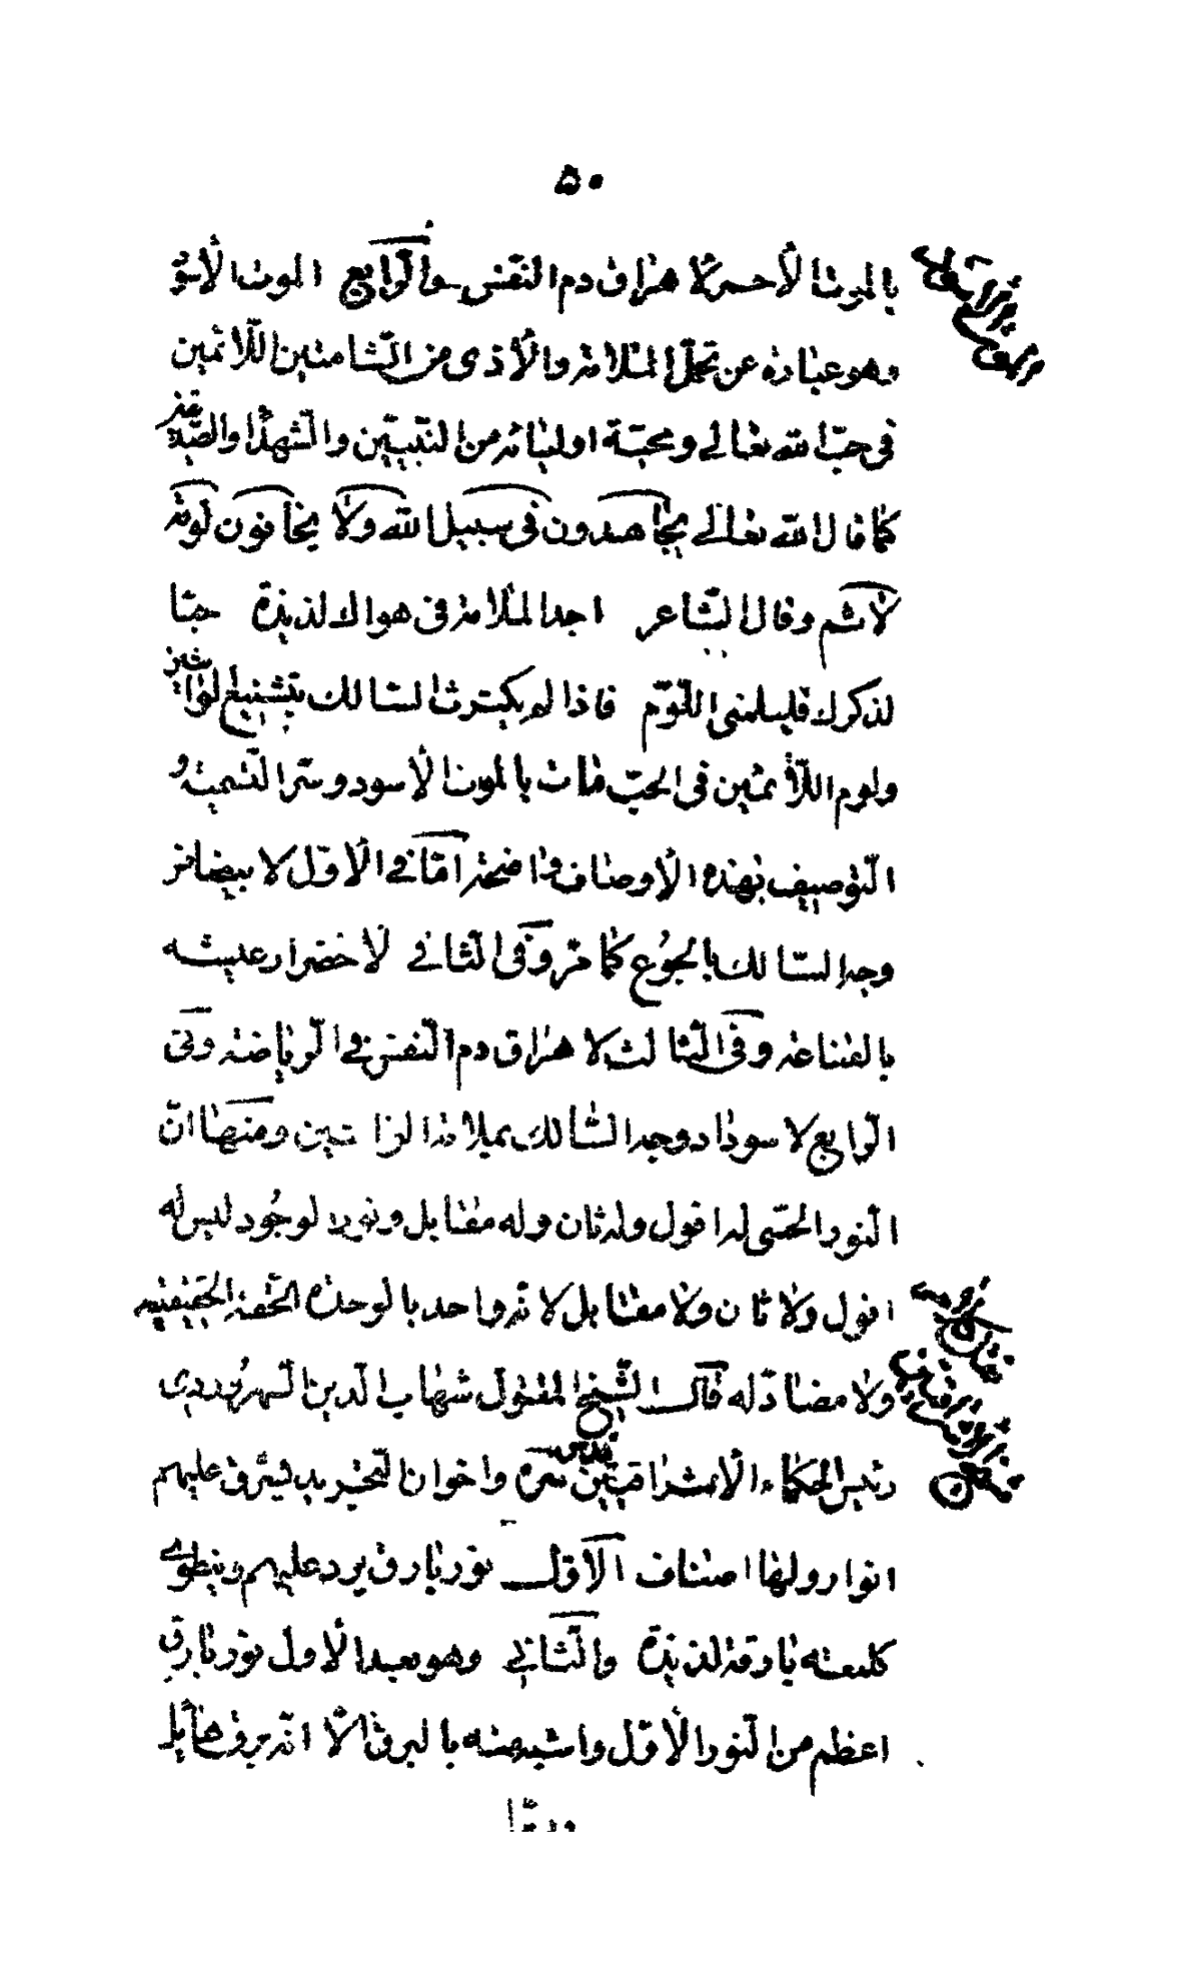 ۵۰
بالموت الأحمر لاهراق دم النفس والرابع الموت الأسود
وهو عبارة عن تحمل الملامة والأذى من الشامتين اللائمين
فی حب الله تعالی ومحبة اوليائه من النبيين والشهداء والصديقين
كما قال الله تعالی يجاهدون فی سبيل الله ولا يخافون لومة
لائم وقال الشاعر اجد الملامة فی هواك لذيذة حبا
لذكرك فليلمنی اللوم فاذا لم يكترث السالك بتشنيع
ولوم اللائمين فی الحب مات بالموت الأسود وسر التسمية و
التوصيف بهذه الأوصاف واضحة اما فی الأول لابيضاض
وجه السالك بالجوع كما مر وفی الثانی لاخضرار عيشه
بالقناعة وفی الثالث لاهراق دم النفس فی الرياضة وفی
الرابع لاسوداد وجه السالك بملامة ومنها ان
النور الحسی له افول وله ثان وله مقابل ونور الوجود ليس له
افول ولا ثان ولا مقابل لانه واحد بالوحدة الحقة الحقيقية
ولا مضاد له قال الشيخ المقتول شهاب الدين السهروردی
رئيس الحكماء الأشراقيين قدس سره واخوان التجريد يشرق عليهم
انوار ولها اصناف الأول نور بارق يرد عليهم وينطوی
كلمعة بارقة لذيذة والثانی وهو بعد الأول نور بارق
اعظم من النور الأول واشبه منه بالبرق الا انه برق هايل
وربما